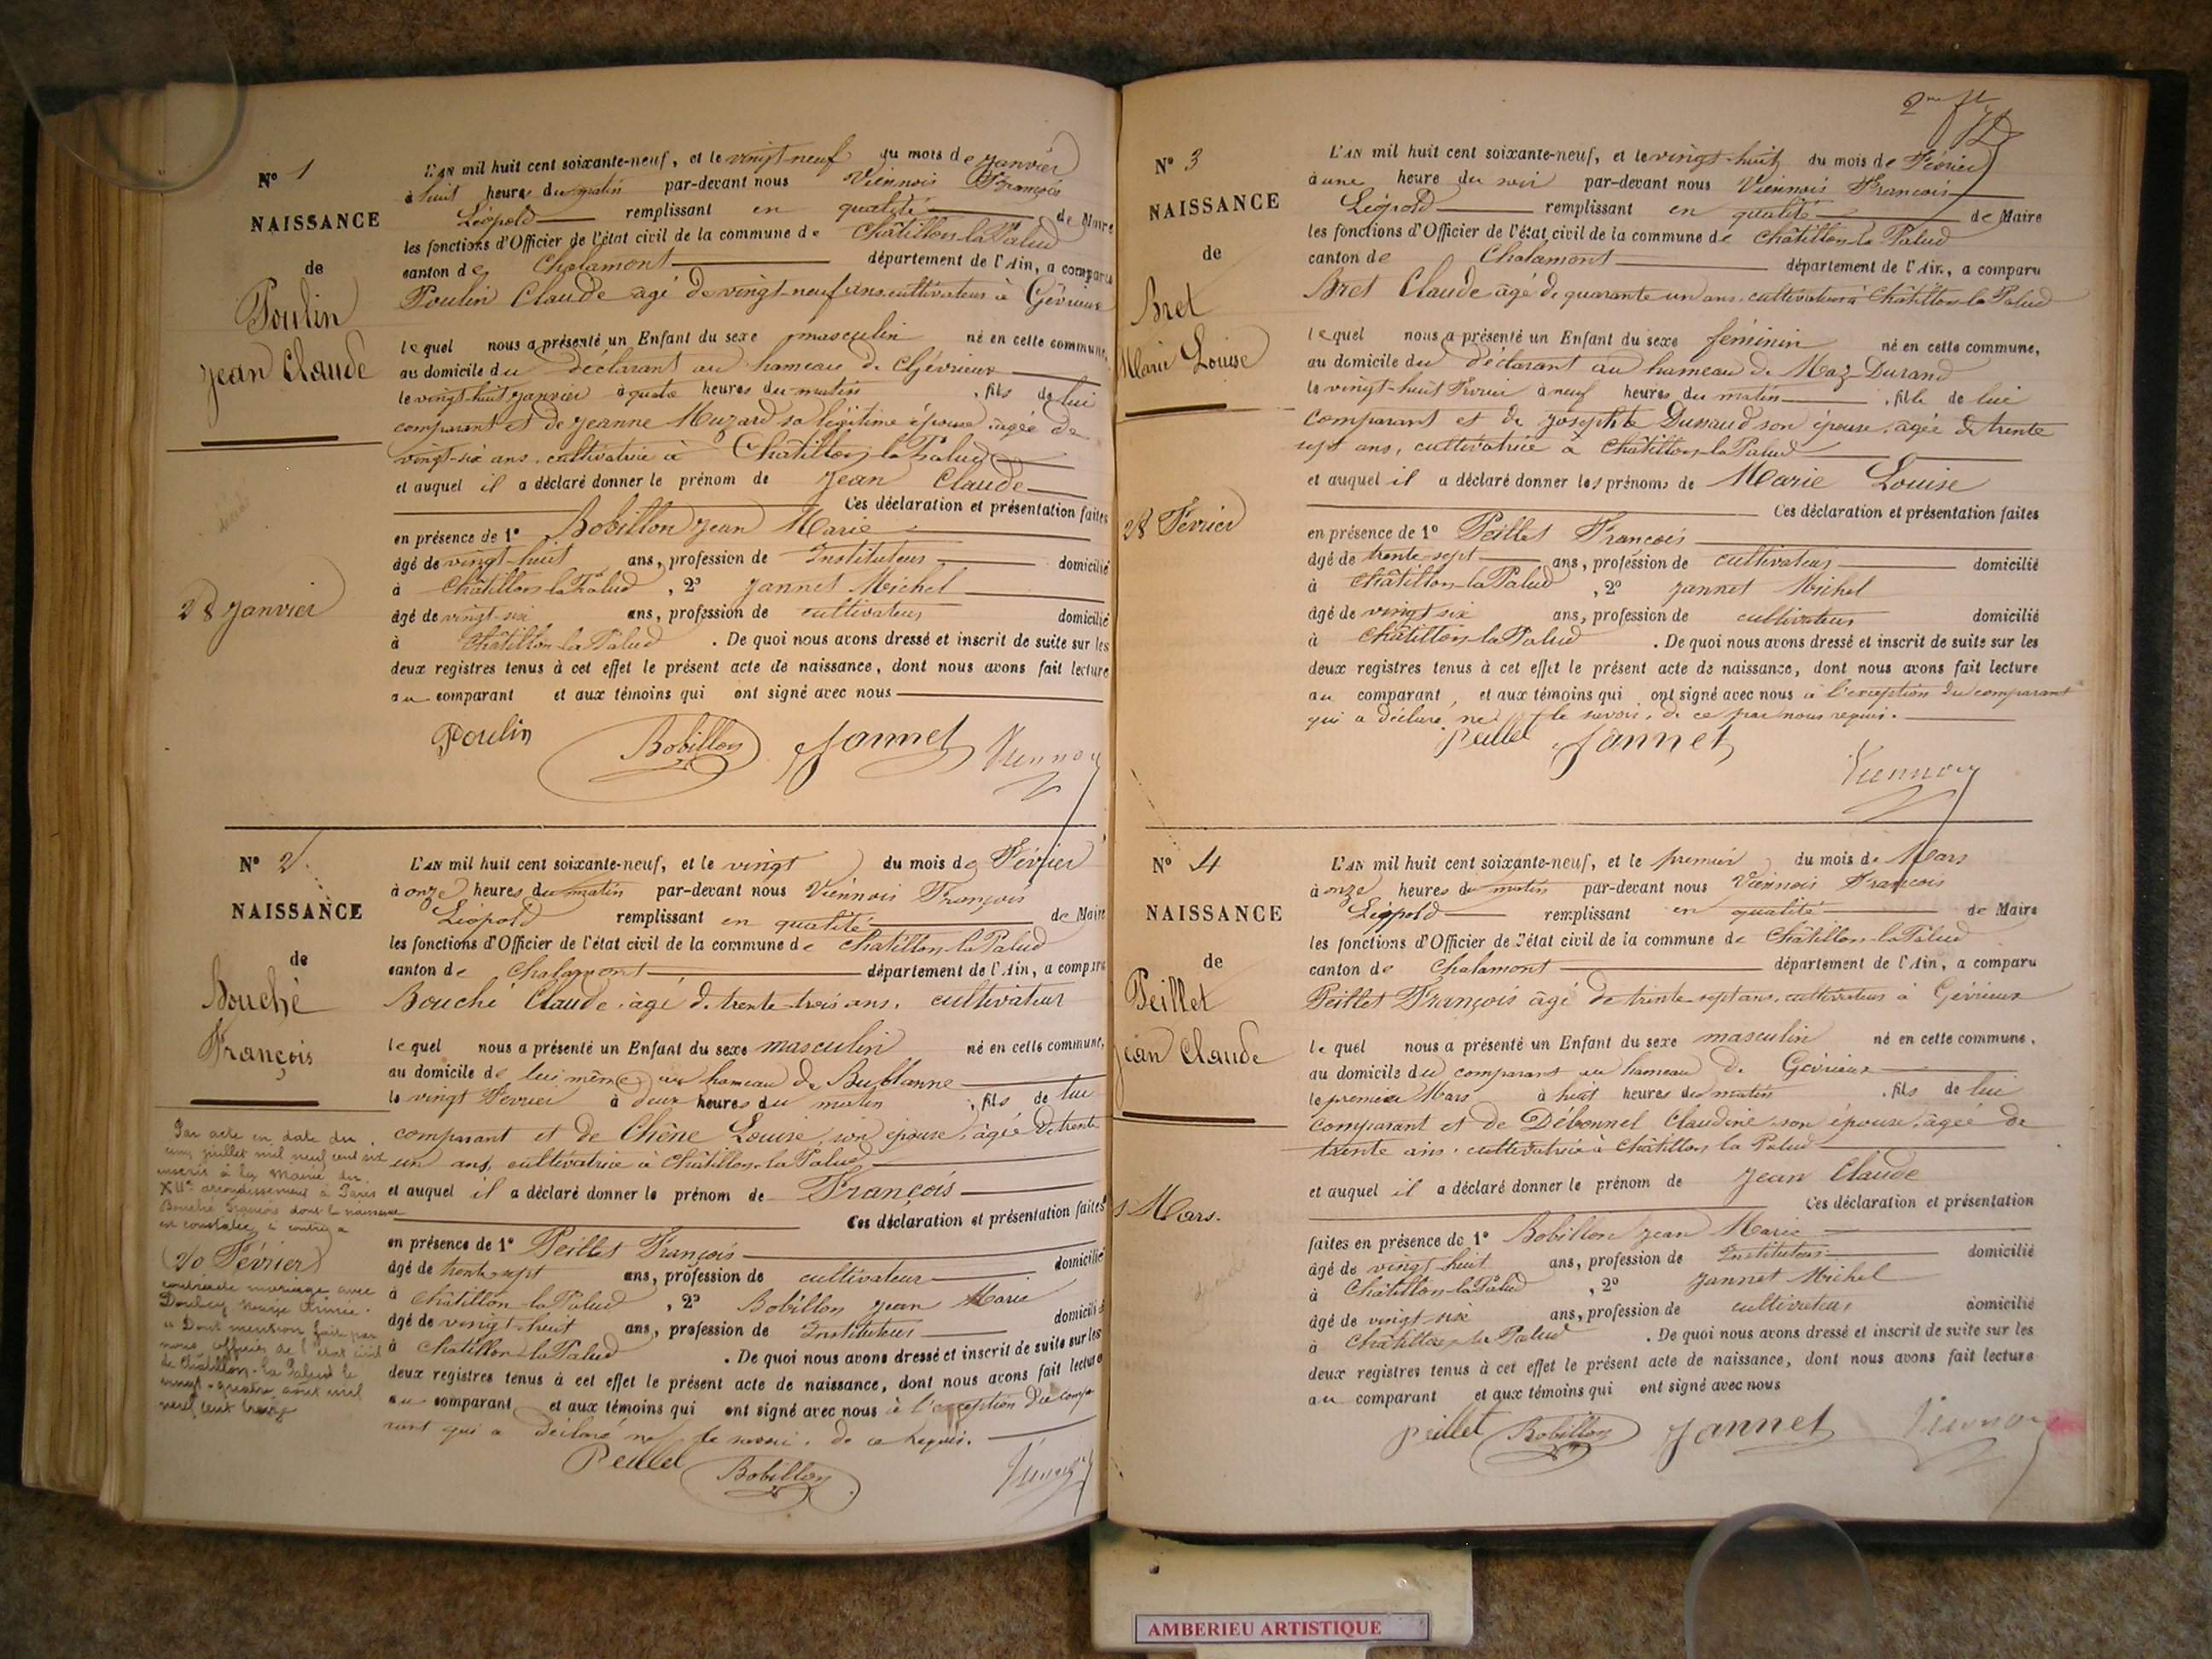 N° 1
NAISSANCE
de
Poulin
Jean Claude
28 Janvier
L'AN mil huit cent soixante-neuf, et le vingt-neuf du mois de Janvier
à huit heures du matin par-devant nous Viennois François
Léopold remplissant en qualité de Maire
les fonctions d'Officier de l'état civil de la commune de Châtillon-la-Palud
canton de Chalamont département de l'Ain, a comparu
Poulin Claude âgé de vingt-neuf ans, cultivateur à Gévrieux
lequel nous a présenté un Enfant du sexe masculin né en cette commune,
au domicile du déclarant au hameau de Gévrieux
le vingt-huit Janvier à quatre heures du matin, fils de lui
comparant et de Jeanne Muzard sa légitime épouse, âgée de
vingt-six ans, cultivatrice à Châtillon-la-Palud
et auquel il a déclaré donner le prénom de Jean Claude
Ces déclaration et présentation faites
en présence de 1° Bobillon Jean Marie
âgé de vingt-huit ans, profession de Instituteur domicilié
à Châtillon-la-Palud, 2° Jannet Michel
âgé de vingt-six ans, profession de cultivateur domicilié
à Châtillon-la-Palud. De quoi nous avons dressé et inscrit de suite sur les
deux registres tenus à cet effet le présent acte de naissance, dont nous avons fait lecture
au comparant et aux témoins qui ont signé avec nous
Poulin Bobillon Jannet Viennois
N° 2
NAISSANCE
de
Bouché
François
Par acte en date du
cinq juillet mil neuf cent six
inscrit à la Mairie du
XIIe arrondissement à Paris
Bouché François dont la naissance
est constatée ci contre a
(20 Février)
contracté mariage avec
Marie Aimée.
Dont mention faite par
nous officier de l'état civil
de Châtillon-la-Palud le
août mil
neuf cent treize
L'AN mil huit cent soixante-neuf, et le vingt du mois de Février
à onze heures du matin par-devant nous Viennois François
Léopold remplissant en qualité de Maire
les fonctions d'Officier de l'état civil de la commune de Chatillon-la-Palud
canton de Chalamont département de l'Ain, a comparu
Bouché Claude, âgé de trente-trois ans, cultivateur
lequel nous a présenté un Enfant du sexe masculin né en cette commune,
au domicile de lui même au hameau de Bublanne
le vingt Février à deux heures du matin, fils de lui
comparant et de Chêne Louise, son épouse, âgée de trente
un ans, cultivatrice à Châtillon-la-Palud
et auquel il a déclaré donner le prénom de François
Ces déclaration et présentation faites
en présence de 1° Peillet François
âgé de trente-sept ans, profession de cultivateur domicilié
à Châtillon-la-Palud, 2° Bobillon Jean Marie
âgé de vingt-huit ans, profession de Instituteur domicilié
à Chatillon-la-Palud. De quoi nous avons dressé et inscrit de suite sur les
deux registres tenus à cet effet le présent acte de naissance, dont nous avons fait lecture
au comparant et aux témoins qui ont signé avec nous à l'exception du compa-
rant qui a déclaré ne le savoir, de ce requis.
Peillet Bobillon Viennois
2me ft
N° 3
NAISSANCE
de
Bret
Marie Louise
28 Février
L'AN mil huit cent soixante-neuf, et le vingt-huit du mois de Février
à une heure du soir par-devant nous Viennois François
Léopold remplissant en qualité de Maire
les fonctions d'Officier de l'état civil de la commune de Châtillon-la-Palud
canton de Chalamont département de l'Ain, a comparu
Bret Claude âgé de quarante un ans, cultivateur à Châtillon-la-Palud
lequel nous a présenté un Enfant du sexe féminin né en cette commune,
au domicile du déclarant au hameau de Maz-Durand
le vingt-huit Février à neuf heures du matin, fille de lui
comparant et de Josephte Dussaud son épouse, âgée de trente
sept ans, cultivatrice à Châtillon-la-Palud
et auquel il a déclaré donner les prénoms de Marie Louise
Ces déclaration et présentation faites
en présence de 1° Peillet François
âgé de trente-sept ans, profession de cultivateur domicilié
à Châtillon-la-Palud, 2° Jannet Michel
âgé de vingt six ans, profession de cultivateur domicilié
à Châtillon-la-Palud. De quoi nous avons dressé et inscrit de suite sur les
deux registres tenus à cet effet le présent acte de naissance, dont nous avons fait lecture
au comparant, et aux témoins qui ont signé avec nous à l'exception du comparant
qui a déclaré ne le savoir, de ce par nous requis.
Peillet Jannet
Viennois
N° 4
NAISSANCE
de
Peillet
Jean Claude
1 Mars.
L'AN mil huit cent soixante-neuf, et le premier du mois de Mars
à onze heures du matin par-devant nous Viennois François
Léopold remplissant en qualité de Maire
les fonctions d'Officier de l'état civil de la commune de Châtillon-la-Palud
canton de Chalamont département de l'Ain, a comparu
Peillet François âgé de trente-sept ans, cultivateur à Gévrieux
lequel nous a présenté un Enfant du sexe masculin né en cette commune,
au domicile du comparant au hameau de Gévrieux
le premier Mars à huit heures du matin, fils de lui
comparant et de Débonnel Claudine son épouse, âgée de
trente ans, cultivatrice à Châtillon la Palud
et auquel il a déclaré donner le prénom de Jean Claude
Ces déclaration et présentation
faites en présence de 1° Bobillon Jean Marie
âgé de vingt huit ans, profession de Instituteur domicilié
à Châtillon-la-Palud, 2° Jannet Michel
âgé de vingt-six ans, profession de cultivateur domicilié
à Châtillon-la-Palud. De quoi nous avons dressé et inscrit de suite sur les
deux registres tenus à cet effet le présent acte de naissance, dont nous avons fait lecture
au comparant et aux témoins qui ont signé avec nous
Peillet Bobillon Jannet Viennois
AMBERIEU ARTISTIQUE